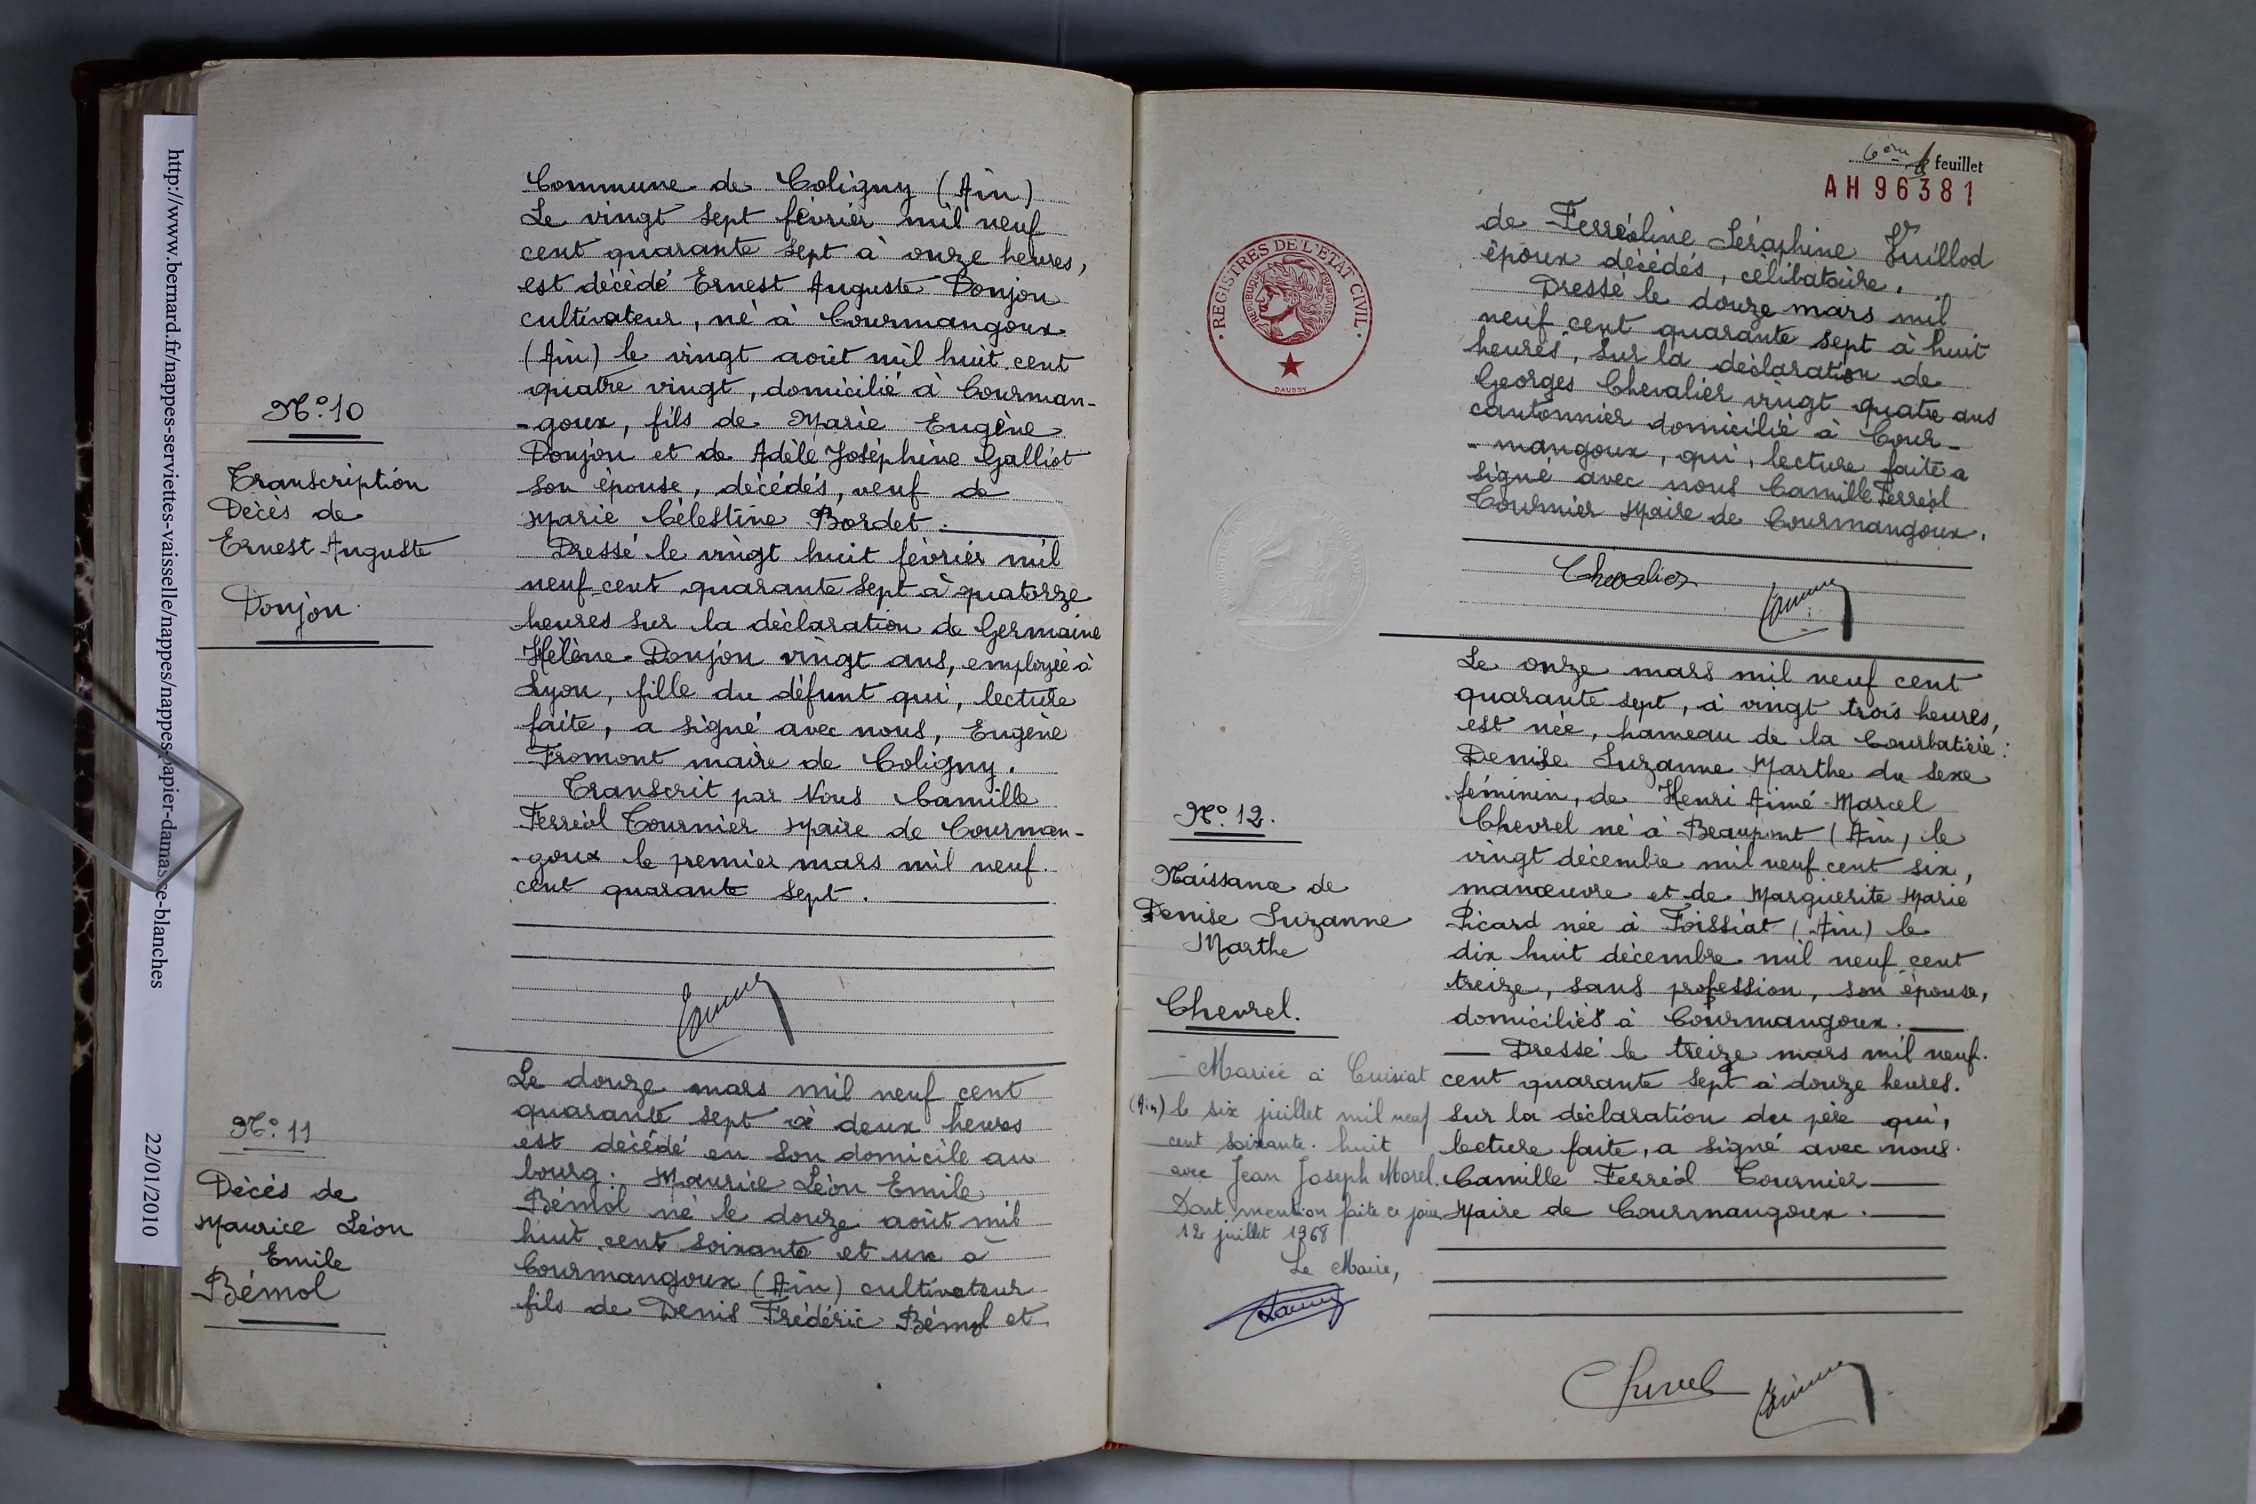 http://www.bernard.fr/nappes-serviettes-vaisselle/nappes/nappes-papier-damasse-blanches
22/01/2010
N° 10
Transcription
Décès de
Ernest Auguste
Donjon.
Commune de Coligny (Ain)
Le vingt sept février mil neuf
cent quarante sept à onze heures,
est décédé Ernest Auguste Donjon
cultivateur, né à Courmangoux
(Ain) le vingt août mil huit cent
quatre vingt, domicilié à Courman-
-goux, fils de Marie Eugène
Donjon et de Adèle Joséphine Galliot
son épouse, décédés, veuf de
Marie Célestine Bordet.
Dressé le vingt huit février mil
neuf cent quarante sept à quatorze
heures sur la déclaration de Germaine
Hélène Donjon vingt ans, employée à
Lyon, fille du défunt qui, lecture
faite, a signé avec nous, Eugène
Fromont maire de Coligny.
Transcrit par Nous Camille
Ferréol Tournier Maire de Courman-
-goux le premier mars mil neuf
cent quarante sept.
N° 11
Décès de
Maurice Léon
Emile
Bémol
Le douze mars mil neuf cent
quarante sept à deux heures
est décédé en son domicile au
bourg: Maurice Léon Emile
Bémol né le douze août mil
huit cent soixante et un à
Courmangoux (Ain) cultivateur
fils de Denis Frédéric Bémol et
6ème feuillet
AH 96381
REGISTRES DE L'ÉTAT CIVIL
RÉPUBLIQUE FRANÇAISE
DAUSSY
de Ferréoline Séraphine Vuillod
époux décédés, célibataire.
Dressé le douze mars mil
neuf cent quarante sept à huit
heures, sur la déclaration de
Georges Chevalier vingt quatre ans
cantonnier domicilié à Cour-
-mangoux, qui, lecture faite a
signé avec nous Camille Ferréol
Tournier Maire de Courmangoux.
Chevalier
N° 12.
Naissance de
Denise Suzanne
Marthe
Chevrel.
Mariée à Cuisiat
(Ain) le six juillet mil neuf
cent soixante-huit
avec Jean Joseph Morel.
Dont mention faite ce jour
12 juillet 1968
Le Maire,
Le onze mars mil neuf cent
quarante sept, à vingt trois heures,
est née, hameau de la Courbatière:
Denise Suzanne Marthe du sexe
féminin, de Henri Aimé Marcel
Chevrel né à Beaupont (Ain, le
vingt décembre mil neuf cent six,
manœuvre et de Marguerite Marie
Picard née à Foissiat (Ain) le
dix huit décembre mil neuf cent
treize, sans profession, son épouse,
domiciliés à Courmangoux.
Dressé le treize mars mil neuf
cent quarante sept à douze heures.
sur la déclaration du père qui,
lecture faite, a signé avec nous
Camille Ferréol Tournier
Maire de Courmangoux.
Chevrel